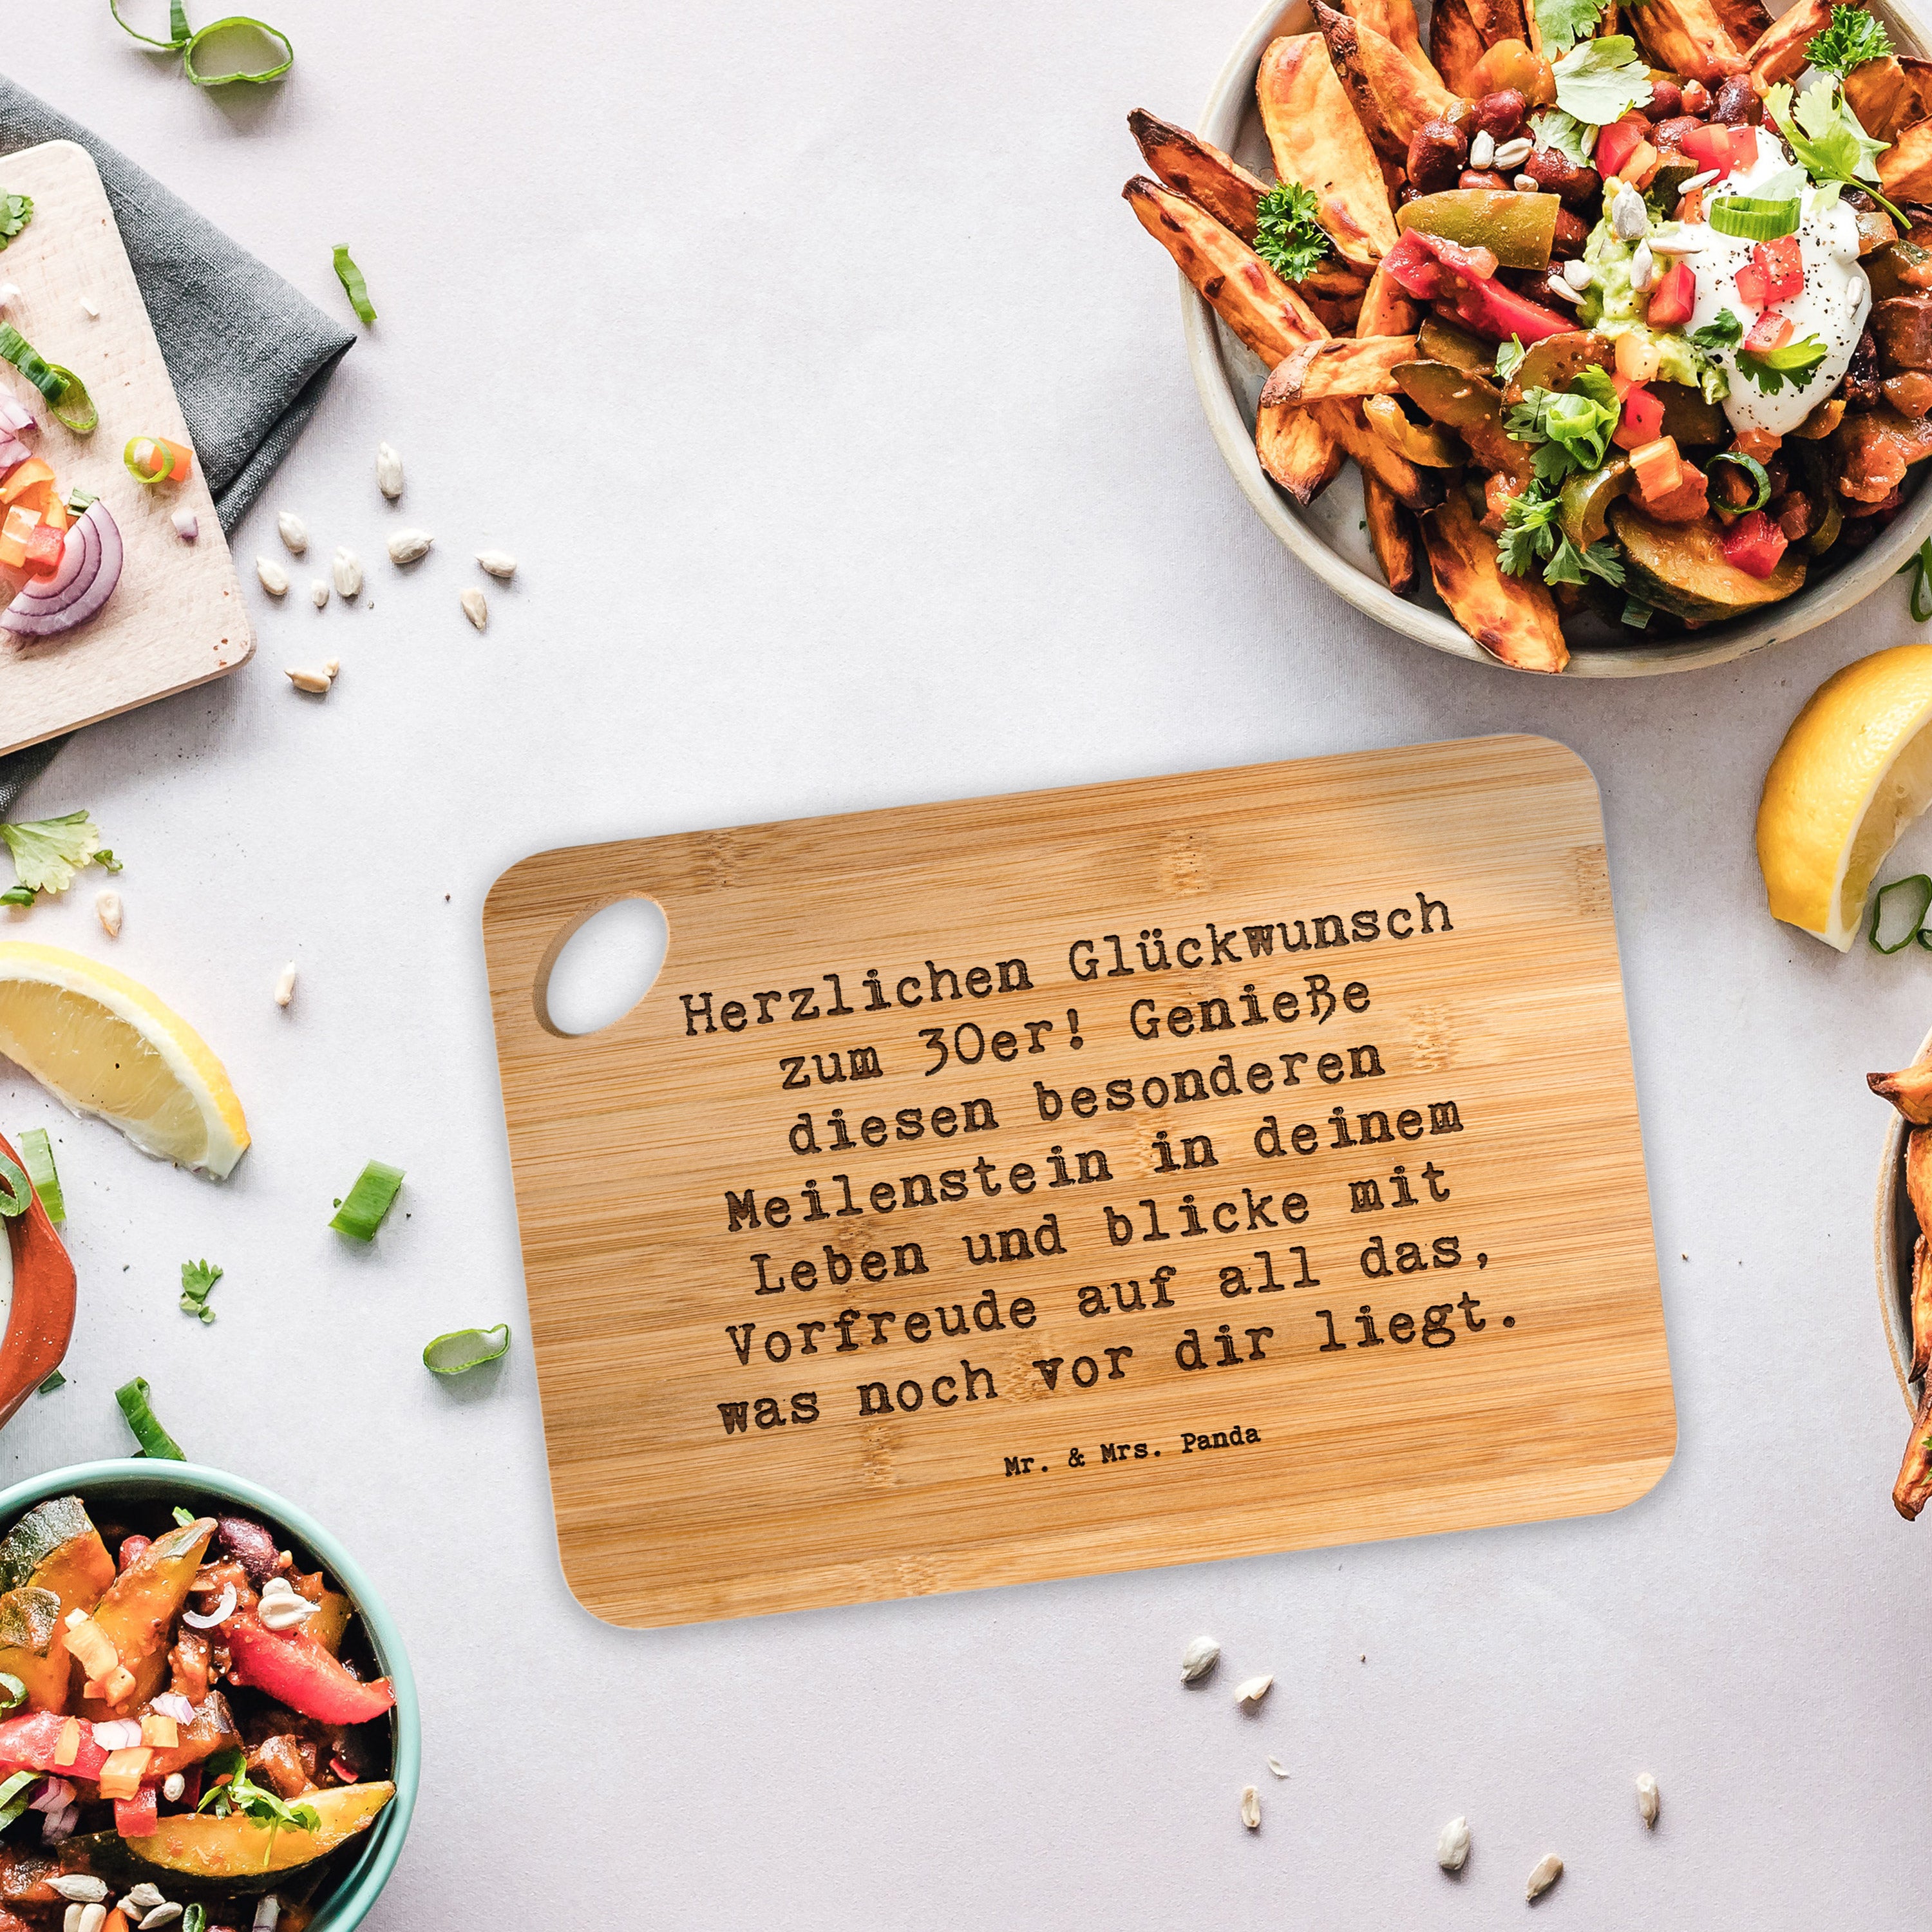 Herzlichen Glückwunsch
zum 30er! Genieße
diesen besonderen
Meilenstein in deinem
Leben und blicke mit
Vorfreude auf all das,
was noch vor dir liegt.
Mr. & Mrs. Panda